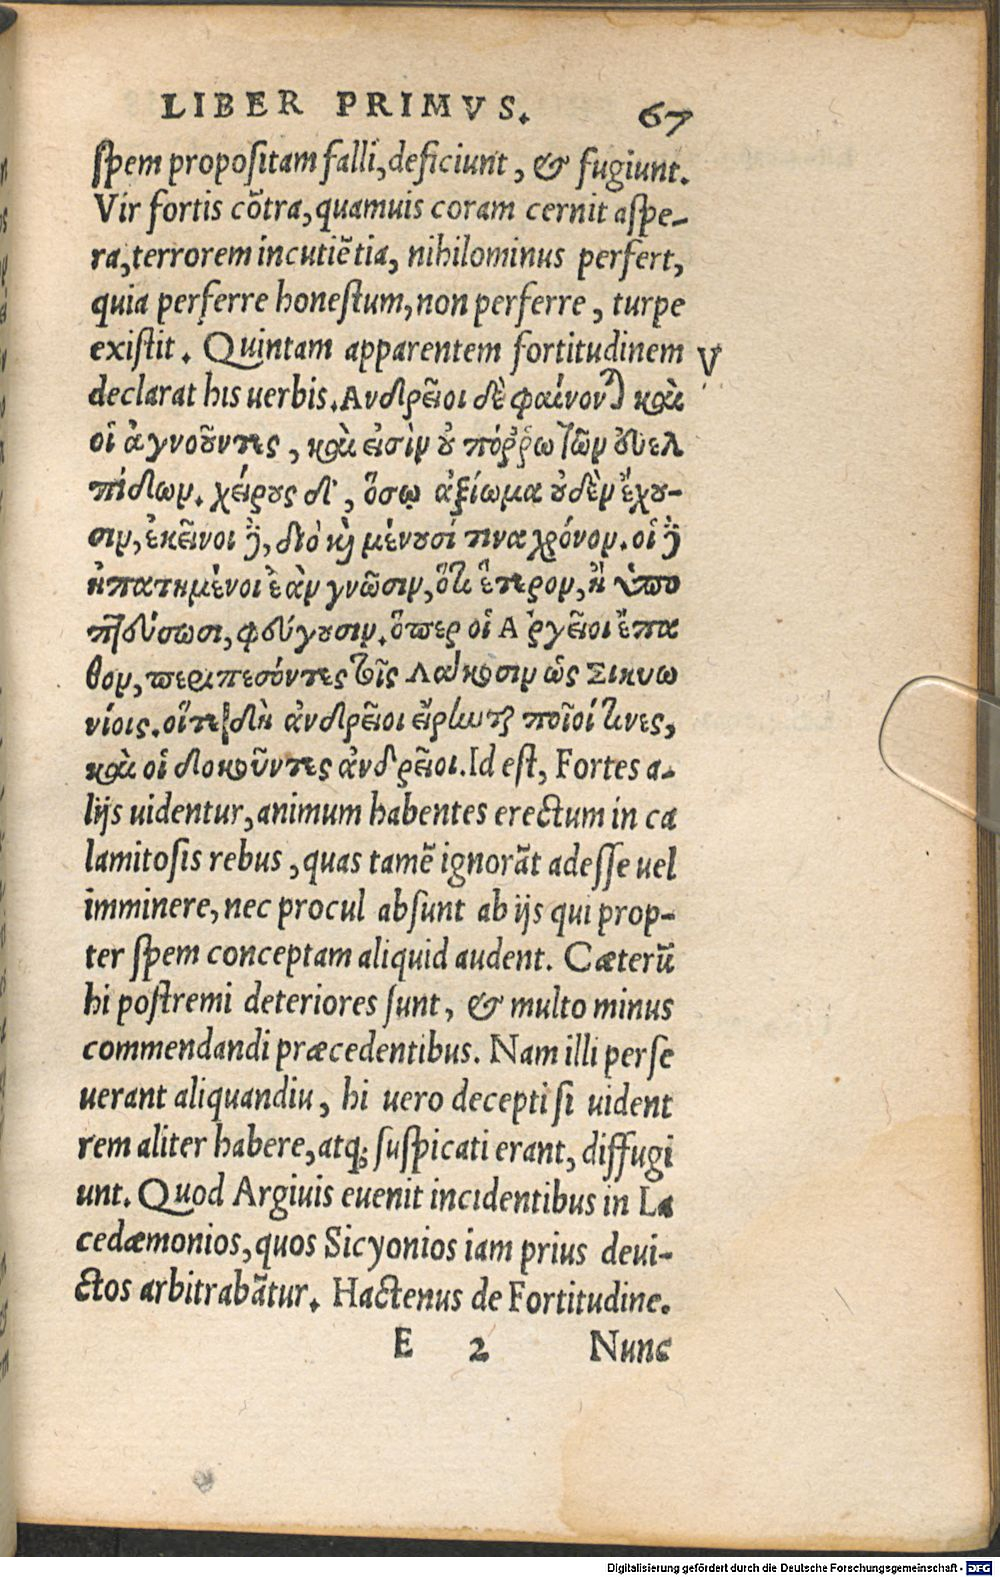 LIBER PRIMVS. 67
spem propositam falli, deficiunt, & fugiunt.
Vir fortis cõtra, quamuis coram cernit aspe-
ra, terrorem incutiẽtia, nihilominus perfert,
quia perferre honestum, non perferre, turpe
existit. Quintam apparentem fortitudinem V
declarat his uerbis. Ανδρεῖοι δὲ φαίνον) καὶ
οἱ ἀγνοοῦντες, καὶ εἰσὶν ȣ πόῤῥω τῶν ȣυελ
πίδων. χείρȣς δ', ὅσῳ ἀξίωμα ȣδὲν ἔχȣ-
σιν, ἐκεῖνοι ϳ, διὸ κỳ μένȣσί τινα χρόνον. οἱ ϳ
ἠπατημένοι ἐὰν γνῶσιν, ὅτι ἕτερον, ἢ ὑπο
πτεύσωσι, φεύγȣσιν. ὅπερ οἱ Ἀργεῖοι ἔπα
θον, περιπεσόντες τοῖς Λάκωσιν ὡς Σικυω
νίοις. οἵ τε δὴ ἀνδρεῖοι εἴρηντ) ποῖοί τινες,
καὶ οἱ δοκοῦντες ἀνδρεῖοι. Id est, Fortes a-
lijs uidentur, animum habentes erectum in ca
lamitosis rebus, quas tamẽ ignorãt adesse uel
imminere, nec procul absunt ab ijs qui prop-
ter spem conceptam aliquid audent. Cæterũ
hi postremi deteriores sunt, & multo minus
commendandi præcedentibus. Nam illi perse
uerant aliquandiu, hi uero decepti si uident
rem aliter habere, atq; suspicati erant, diffugi
unt. Quod Argiuis euenit incidentibus in La
cedæmonios, quos Sicyonios iam prius deui-
ctos arbitrabãtur. Hactenus de Fortitudine.
E 2 Nunc
Digitalisierung gefördert durch die Deutsche Forschungsgemeinschaft - DFG